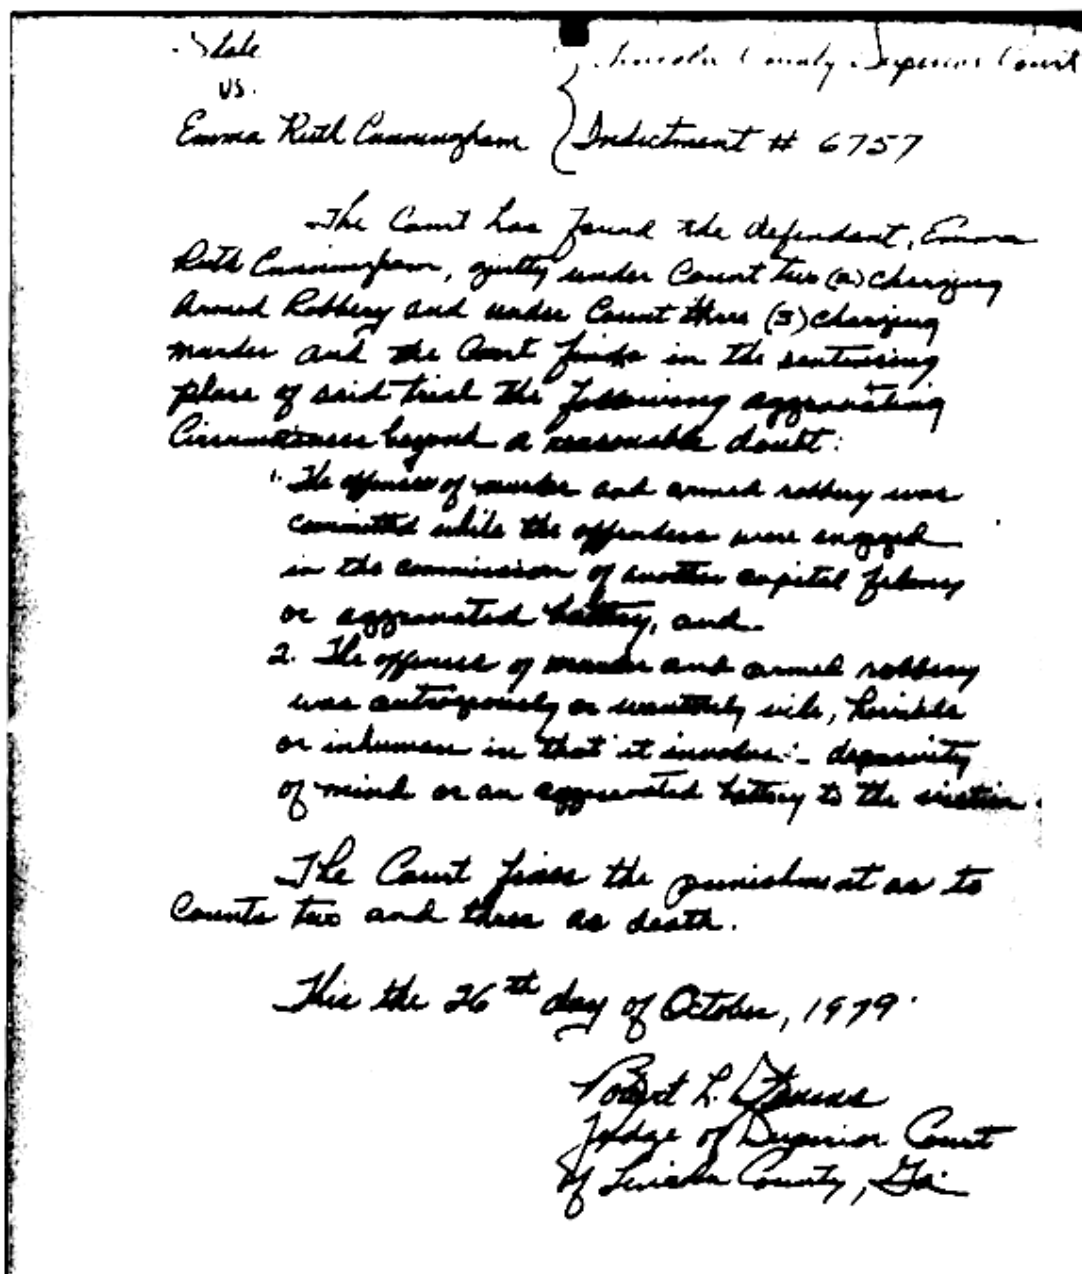 State
vs.
Emma Ruth Cunningham
Lincoln County Superior Court
Indictment # 6757
The Court has found the defendant, Emma
Ruth Cunningham, guilty under Count two (2) charging
Armed Robbery and under Count three (3) charging
murder and the Court finds in the sentencing
phase of said trial the following aggravating
Circumstances beyond a reasonable doubt:
1. The offenses of murder and armed robbery was
committed while the offenders were engaged
in the commission of another capital felony
or aggravated battery, and
2. The offenses of murder and armed robbery
was outrageously or wantonly vile, horrible
or inhuman in that it involves depravity
of mind or an aggravated battery to the victim.
The Court fixes the punishment as to
Counts two and three as death.
This the 26th day of October, 1979.
Robert L.
Judge of Superior Court
of Lincoln County, Ga.